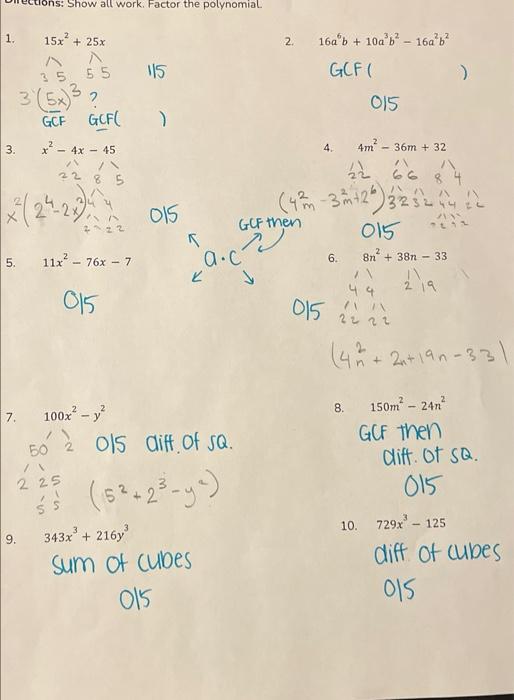 Directions: Show all work. Factor the polynomial.
1. 15x² + 25x
3 5 5 5
1/5
3(5x)³ ?
GCF GCF( )
2. 16a⁶b + 10a³b² − 16a²b²
GCF ( )
0/5
3. x² − 4x − 45
2 2 8 5
4 4
2 2 2 2
x²(2⁴-2x²)
0/5
4. 4m² − 36m + 32
2 2 6 6 8 4
3 2 3 2 4 4 2 2
2 2 2 2
(4²m - 3²m + 2⁶)
0/5
GCF then
a·c
5. 11x² − 76x − 7
0/5
6. 8n² + 38n − 33
4 4 2 19
2 2 2 2
0/5
(4n² + 2n + 19n - 33)
7. 100x² − y²
50 2
2 25
5 5
0/5 diff. of SQ.
(5² + 2³ - y²)
8. 150m² − 24n²
GCF then
diff. of SQ.
0/5
9. 343x³ + 216y³
sum of cubes
0/5
10. 729x³ − 125
diff of cubes
0/5